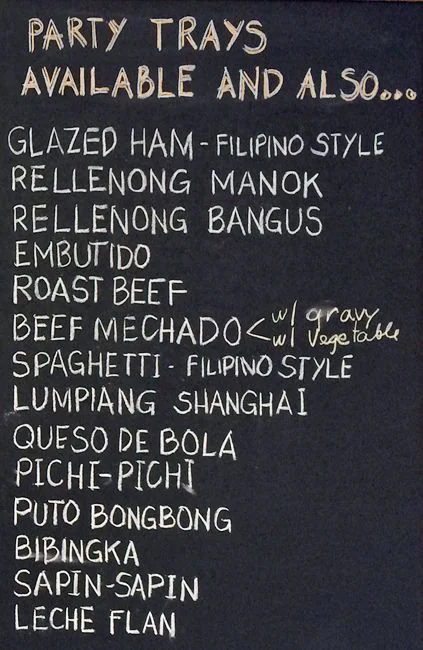 PARTY TRAYS
AVAILABLE AND ALSO...
GLAZED HAM - FILIPINO STYLE
RELLENONG MANOK
RELLENONG BANGUS
EMBUTIDO
ROAST BEEF
BEEF MECHADO < w/ gravy
w/ vegetable
SPAGHETTI - FILIPINO STYLE
LUMPIANG SHANGHAI
QUESO DE BOLA
PICHI-PICHI
PUTO BONGBONG
BIBINGKA
SAPIN-SAPIN
LECHE FLAN